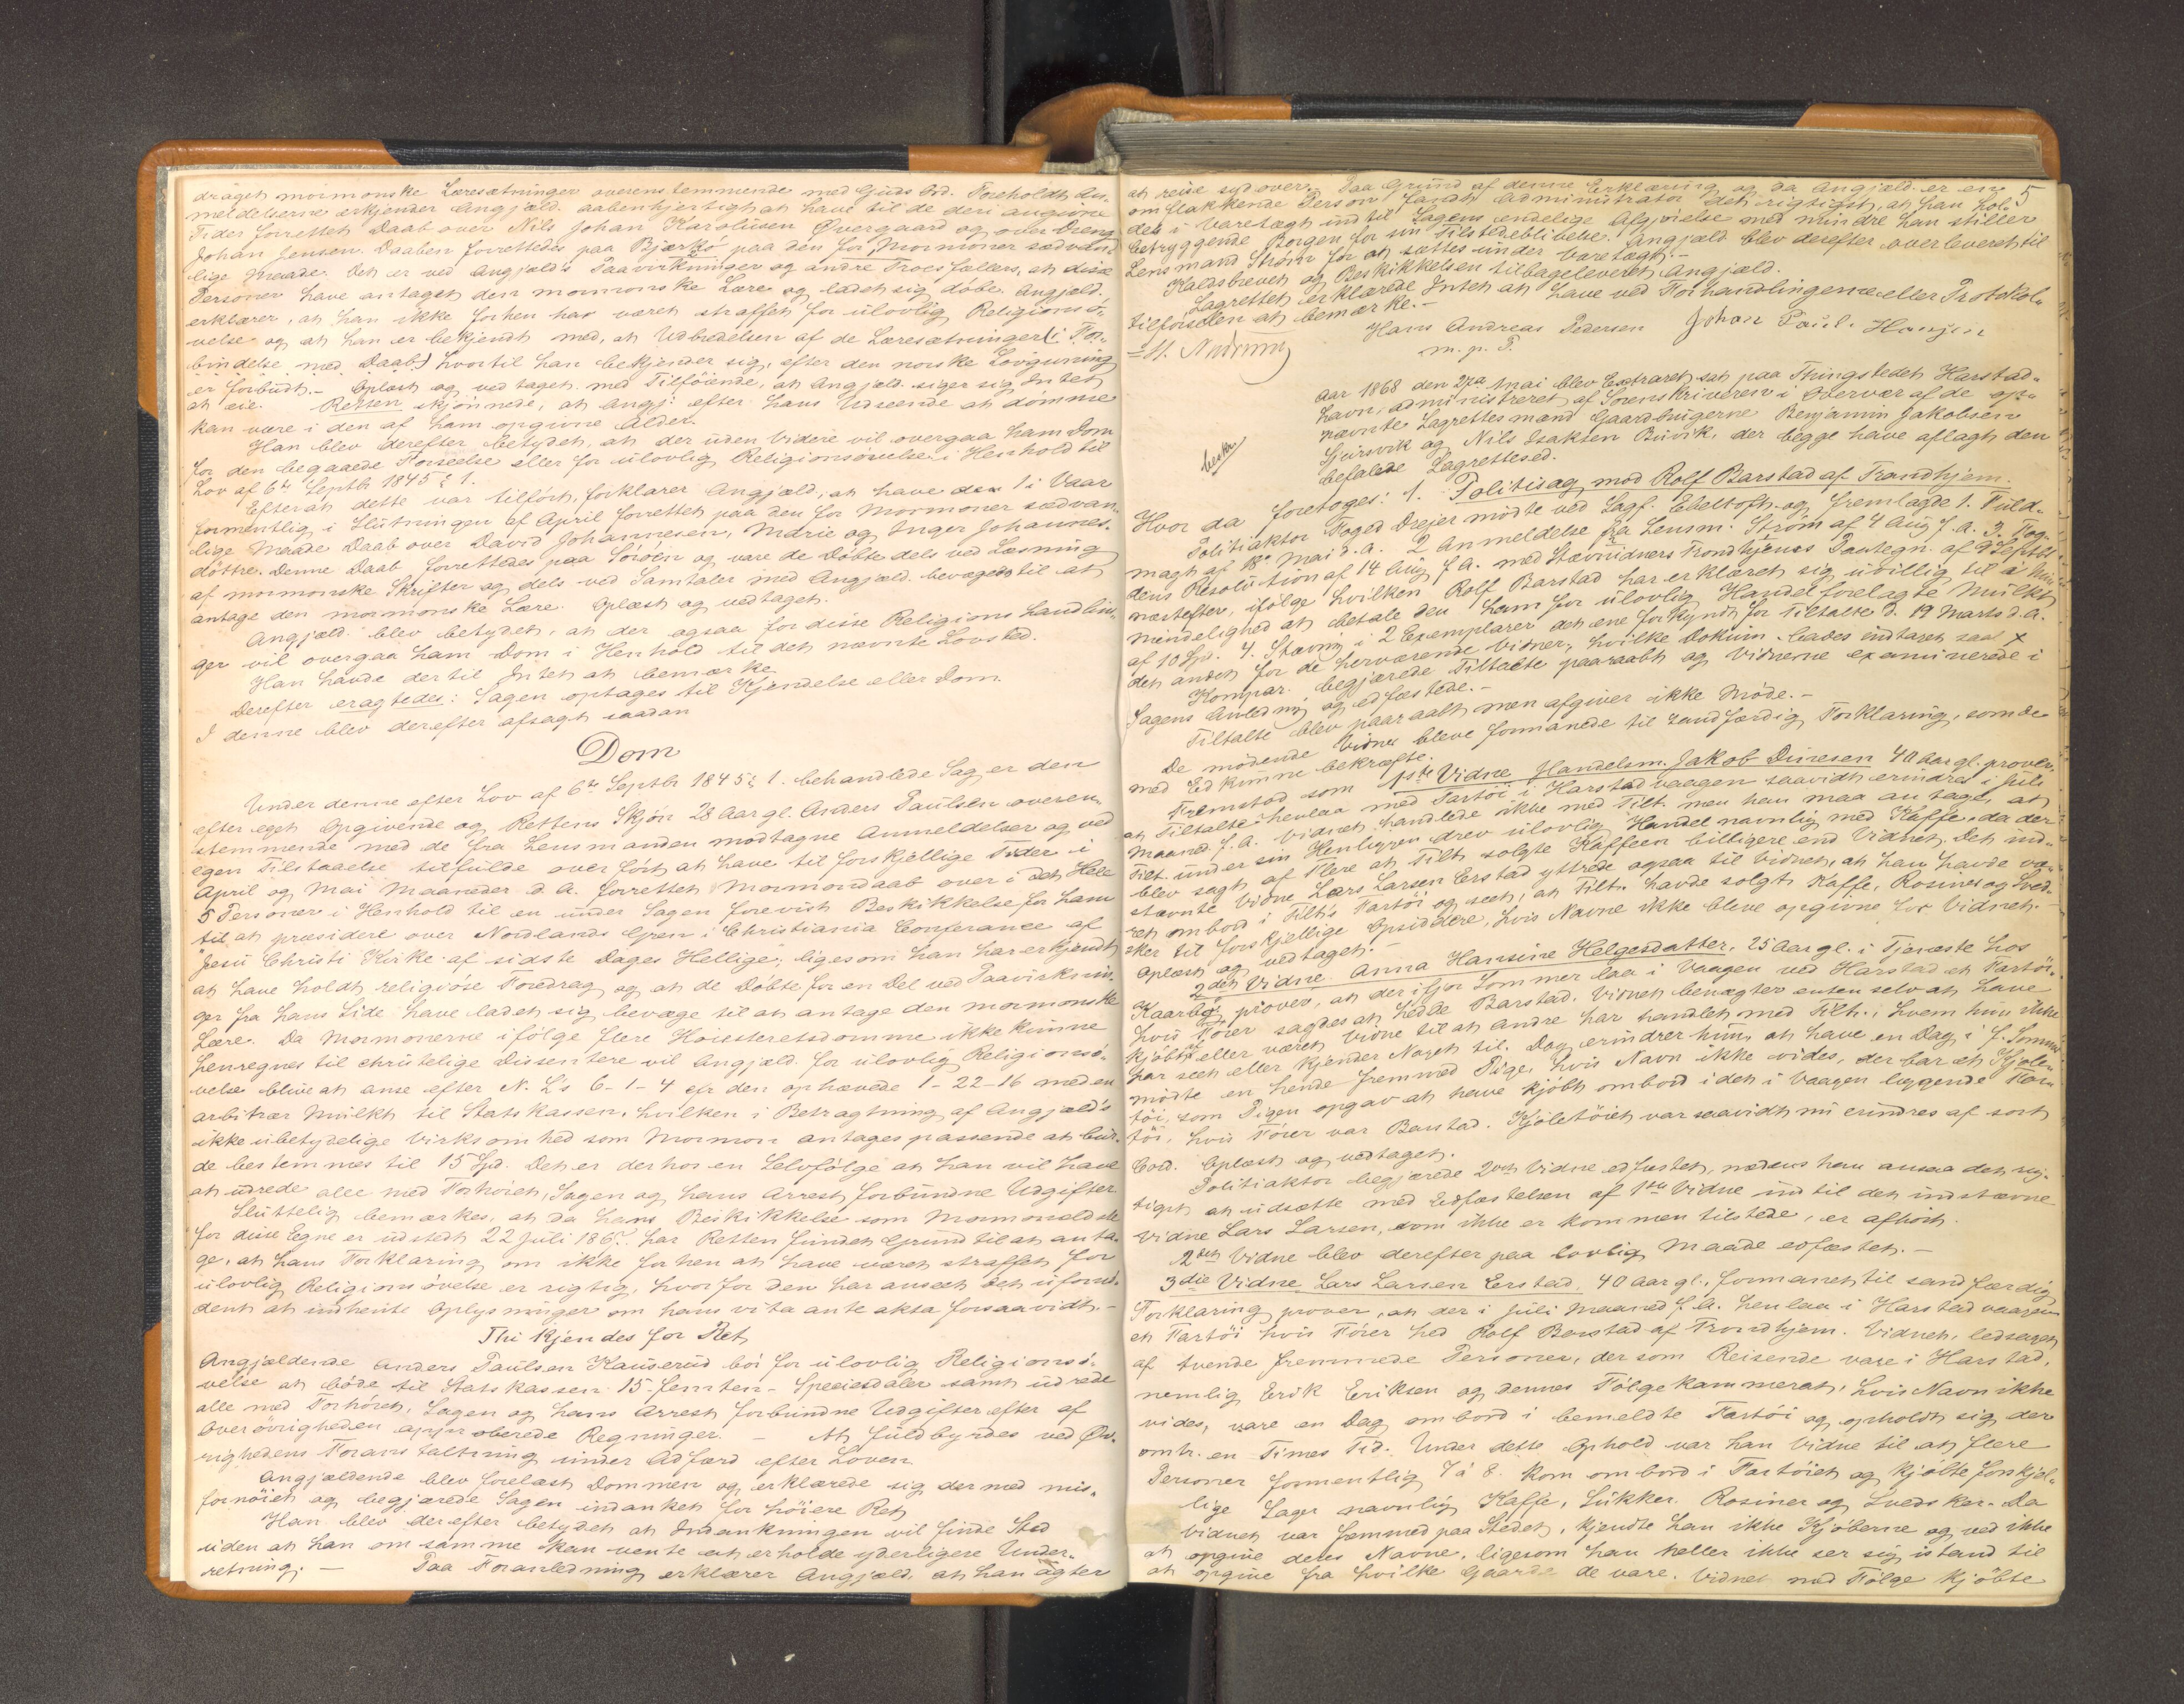 draget mormonske Læresætninger overensstemmende med Guds Ord. Foreholdt An-
meldelserne erkjender Angjæld. aabenhjertigt at have til de deri angivne
Tider forrettet Daab over Nils Johan Karolüsen Øvergaard og over
Johan Jensen. Daaben forrettedes paa Bjærkö paa den for Mormoner sædvan-
lige Maade. Det er ved Angjæld's Paavirkninger og andre Troesfællers, at disse
Personer have antaget den mormonske Lære og ladet sig döbe. Angjæld.
erklærer, at han ikke forhen har været straffet for ülovlig Religionsö-
velse og at han er bekjendt med, at Udbredelsen af de Læresætninger (i For-
bindelse med Daab) hvortil han bekjender sig, efter den norske Lovgivning
er forbüdt. - Oplæst og vedtaget med Tilföiende, at Angjæld. siger sig Intet
at eie. Retten skjönnede, at Angj. efter hans Udseende at dömme
kan være i den af ham opgivne Alder.
Han blev derefter betydet, at der üden Videre vil overgaa ham Dom
for den begaaede Forseelse eller for ülovlig Religionsövelse i Henhold til
Lov af 6te Septbr 1845 § 1.
Efterat dette var tilfört, forklarer Angjæld, at have den 1 i Vaar
formentlig i Slütningen af April forrettet paa den for Mormoner sædvan-
lige Maade Daab over David Johannesen, Marie og Inger Johannes-
döttre. Denne Daab forrettedes paa Sörölln og vare de Döbte dels ved Læsning
af mormonske Skrifter og dels ved Samtaler med Angjæld. bevægede til at
antage den mormonske Lære. Oplæst og vedtaget.
Angjæld. blev betydet, at der ogsaa for disse Religions Handlin-
ger vil overgaa ham Dom i Henhold til det nævnte Lovsted.
Han havde dertil Intet at bemærke
Derefter eragtedes: Sagen optages til Kjendelse eller Dom.
I denne blev derefter afsagt saadan
Dom
Under denne efter Lov af 6te Septbr 1845 § 1. behandlede Sag er den
efter eget Opgivende og Rettens Skjön 28 Aar gl. Anders Paülsen overen-
stemmende med de fra Lensmanden modtagne Anmeldelser og ved
egen Tilstaaelse tilfülde overfört at have til forskjellige Tider i
April og Mai Maaneder d. A. forrettet Mormondaab over i det Hele
5 Personer i Henhold til en ünder Sagen forevist Beskikkelse for ham
til at præsidere over Nordlands Gren i Christiania Conferance af
"Jesü Christi Kirke af sidste Dages Hellige", ligesom han har erkjendt
at have holdt religiöse Foredrag og at de Döbte for en Del ved Paavirknin-
ger fra hans Side have ladet sig bevæge til at antage den mormonske
Lære. Da Mormonerne ifölge flere Höiesteretsdomme ikke künne
henregnes til christelige Dissentere vil Angjæld. for ülovlig Religionsö-
velse blive at anse efter N. L's 6-1-4 cfr den ophævede 1-22-16 med en
arbitrær Mulkt til Statskassen, hvilken i Betragtning af Angjæld's
ikke übetydelige Virksomhed som Mormon antages passende at bür-
de bestemmes til 15 Spd. Det er derhos en Selvfölge at han vil have
at üdrede alle med Forhöret, Sagen og hans Arrest forbündne Udgifter
Slüttelig bemærkes, at da hans Beskikkelse som Mormonældste
for disse Egne er üdstedt 22 Jüli 1867. har Retten fündet Grund til at anta-
ge, at hans Forklaring om ikke forhen at have været straffet for
ülovlig Religionsövelse er rigtig, hvorfor den har anseet det üfornö-
dent at indhente Oplysninger om hans vita ante akta forsaavidt. -
Thi kjendes for Ret
Angjældende Anders Paülsen Kauserüd bör for ülovlig Religionsö-
velse at böde til Statskassen 15 - femten - Speciesdaler samt üdrede
alle med Forhöret, Sagen og hans Arrest forbündne Udgifter efter af
Overövrigheden approberede Regninger. - At füldbyrdes ved Öv-
righedens Foranstaltning ünder Adfærd efter Loven
Angjældende blev forelæst Dommen og erklærede sig dermed mis-
fornöiet og begjærede Sagen indanket for höiere Ret
Han blev derefter betydet at Indankningen vil finde Sted
üden at han om samme kan vente at erholde yderligere Under-
retning. - Paa Foranledning erklærer Angjæld. at han agter
at reise sydover. Paa Gründ af denne Erklæring og da Angjæld. er en
5
omflakkende Person fandt Administrator det rigtigst, at han hol-
des i Varetægt indtil Sagens endelige Afgjörelse med mindre han stiller
betryggende Borgen for sin Tilstedeblivelse. Angjæld blev derefter overleveret til
Lensmand Ström for at sættes ünder Varetægt. -
Kaldsbrevet og Beskikkelsen tilbageleveret Angjæld.
Lagrettet erklærede Intet at have ved Forhandlingerne eller Protokol-
tilförselen at bemærke. -
Hans Andreas Pedersen Johan Paul. Hansen
m. p. P.
Aar 1868 den 27de Mai blev Extraret sat paa Thingstedet Harstad-
havn, administreret af Sorenskriveren i Overvær af de op-
nævnte Lagrettesmænd Gaardbrügerne Benjamin Jakobsen
og Nils Isaksen Büvik, der begge have aflagt den
befalede Lagrettesed.
beskr
Hvor da foretoges: 1. Politisag mod Rolf Barstad af Trondhjem.
Politiaktor Foged Drejer mödte ved Sagf. Ebeltoft og fremlagde 1. Füld-
magt af 18 Mai d. A. 2 Anmeldelse fra Lensm. Ström af 4 Aug f. A. 3. Fog-
dens Resolution af 14 Aug f A. med Stævnidners Trondhjems Paategn. af 9 Septbr
næstefter, ifölge hvilken Rolf Barstad har erklæret sig üvillig til i Min-
delighed at betale den ham for ülovlig Handel forelagte Mülkt
af 10 Spd. 4. Stævning i 2 Exemplarer det ene forkyndt for Tiltalte d. 19 Marts d. A.
det andet for de herværende Vidner, hvilke Doküm. bades indtaget saal. x
Kompar. begjærede Tiltalte paaraabt og Vidnerne examinerede i
Sagens Anledning og edfæstede. -
Tiltalte blev paaraabt men afgiver ikke Möde. -
De mödende Vidner bleve formanede til sandfærdig Forklaring, som de
med Ed künne bekræfte.
Fremstod som 1ste Vidne Handelsm. Jakob Dinesen 40 Aar gl. prover,
at Tiltalte henlaa med Fartöi i Harstadvaagen saavidt erindres i Jüli
Maaned f. A. Vidnet handlede ikke med Tilt. men han maa antage, at
Tilt. ünder sin Henliggen drev ülovlig Handel navnlig med Kaffe, da der
blev sagt af Flere at Tilt. solgte Kaffeen billigere end Vidnet. Det ind-
stævnte Vidne Lars Larsen Erstad yttrede ogsaa til Vidnet, at han havde væ-
ret ombord i Tilt's Fartöi og seet, at Tilt. havde solgt Kaffe, Rosiner og Sved-
sker til forskjellige Opsiddere, hvis Navne ikke bleve opgivne for Vidnet. -
Oplæst og vedtaget. -
2det Vidne Anna Hansine Helgesdatter, 25 Aar gl. i Tjeneste hos
Kaarbö prover, at der ifjor Sommer laa i Vaagen ved Harstad et Fartöi
hvis Förer sagdes at hedde Barstad. Vidnet benægter enten selv at have
kjöbt eller været Vidne til at Andre har handlet med Tilt., hvem hün ikke
har seet eller kjender Noget til. Dog erindrer hün at have en Dag i f. Sommer
mödte en hende fremmed Pige, hvis Navn ikke vides, der bar et Kjole-
töi, som Pigen opgav at have kjöbt ombord i det i Vaagen liggende Far-
töi, hvis Förer var Barstad. Kjoletöiet var saavidt nü erindres af sort
Oplæst og vedtaget.
Politiaktor begjærede 2det Vidne edfæstet, medens han ansaa det rig-
tigst at üdsætte med Edfæstelsen af 1ste Vidne indtil det indstævne
Vidne Lars Larsen, som ikke er kommen tilstede, er afhört.
2det Vidne blev derefter paa lovlig Maade edfæstet. -
3die Vidne Lars Larsen Erstad 40 Aar gl., formanet til sandfærdig
Forklaring prover, at der i Jüli Maaned f. A. henlaa i Harstadvaagen
et Fartöi hvis Förer hed Rolf Barstad af Trondhjem. Vidnet, ledsaget
af tvende fremmede Personer, der som Reisende vare i Harstad,
nemlig Erik Eriksen og dennes Fölgekammerat, hvis Navn ikke
vides, vare en Dag ombord i bemeldte Fartöi og opholdt sig der
omtr. en Times Tid. Under dette Ophold var han Vidne til at flere
Personer formentlig 7 à 8. kom ombord i Fartöiet og kjöbte forskjel-
lige Sager navnlig Kaffe, Sükker. Rosiner og Svedsker. Da
Vidnet var fremmed paa Stedet, kjendte han ikke Kjöberne og ved ikke
at opgive deres Navne, ligesom han heller ikke ser sig istand til
at opgive fra hvilke Gaarde de vare. Vidnet med Fölge kjöbte